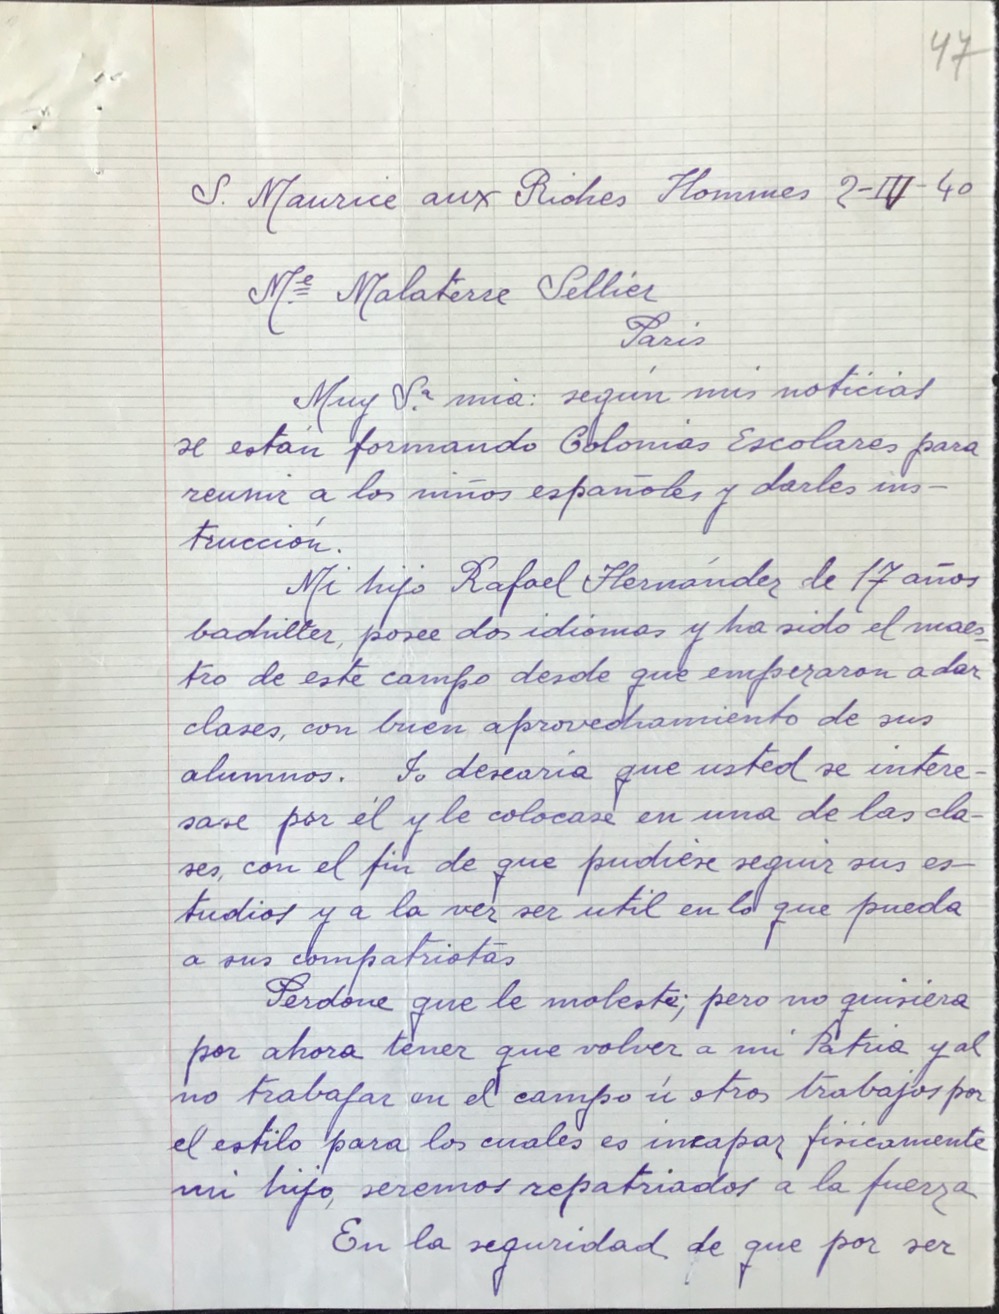 47
S. Maurice aux Riches Hommes 2-IV-40
Mᵉ Malaterre Sellier
Paris
Muy Sʳᵃ mia: según mis noticias
se están formando Colonias Escolares para
reunir a los niños españoles y darles ins-
trucción.
Mi hijo Rafael Hernández de 17 años
bachiller, posee dos idiomas y ha sido el maes-
tro de este campo desde que empezaron a dar
clases, con buen aprovechamiento de sus
alumnos. Yo desearía que usted se intere-
sase por él y le colocase en una de las cla-
ses, con el fin de que pudiese seguir sus es-
tudios y a la vez ser util en lo que pueda
a sus compatriotas
Perdone que le moleste; pero no quisiera
por ahora tener que volver a mi Patria y al
no trabajar en el campo ú otros trabajos por
el estilo para los cuales es incapaz fisicamente
mi hijo, seremos repatriados a la fuerza
En la seguridad de que por ser